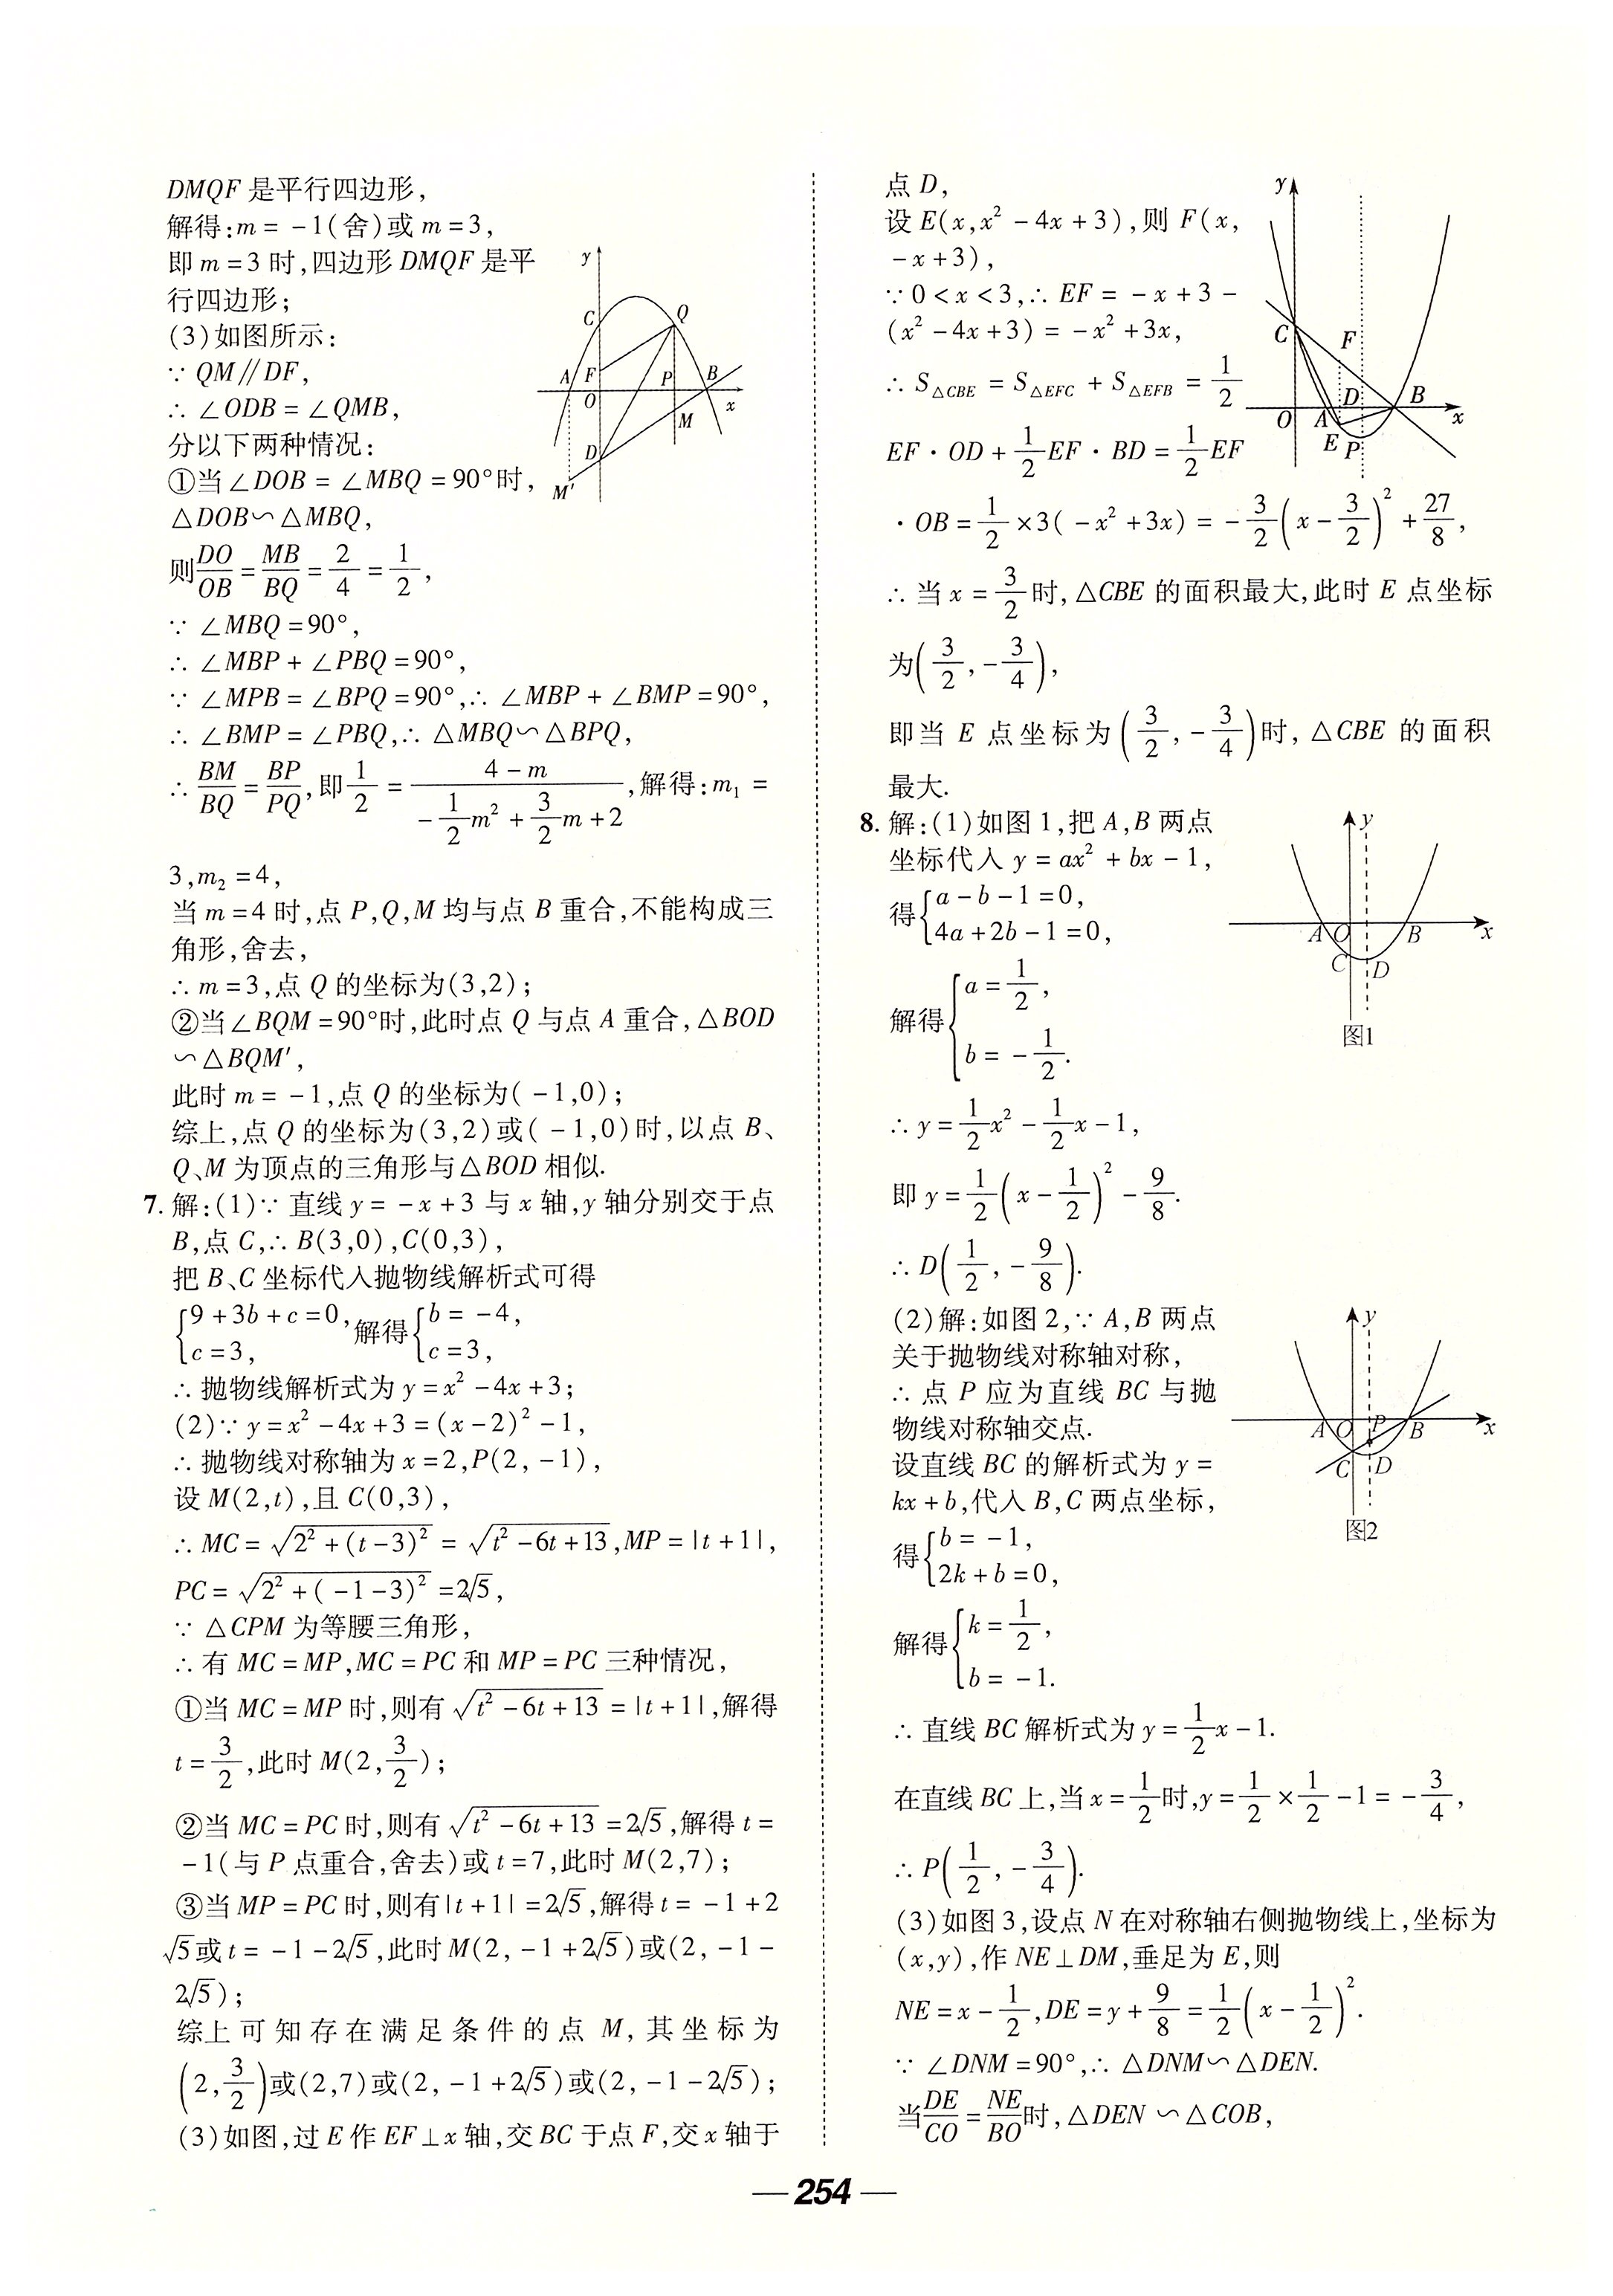 DMQF 是平行四边形,
解得:m = -1(舍)或 m = 3,
即 m = 3 时,四边形 DMQF 是平
行四边形;
(3)如图所示:
∵ QM∥DF,
∴ ∠ODB = ∠QMB,
分以下两种情况:
①当∠DOB = ∠MBQ = 90°时,
△DOB∽△MBQ,
则DO/OB = MB/BQ = 2/4 = 1/2,
∵ ∠MBQ = 90°,
∴ ∠MBP + ∠PBQ = 90°,
∵ ∠MPB = ∠BPQ = 90°,∴ ∠MBP + ∠BMP = 90°,
∴ ∠BMP = ∠PBQ,∴ △MBQ∽△BPQ,
∴ BM/BQ = BP/PQ,即1/2 = (4 - m)/(-1/2 m² + 3/2 m + 2),解得:m₁ =
3,m₂ = 4,
当 m = 4 时,点 P,Q,M 均与点 B 重合,不能构成三
角形,舍去,
∴ m = 3,点 Q 的坐标为(3,2);
②当∠BQM = 90°时,此时点 Q 与点 A 重合,△BOD
∽△BQM′,
此时 m = -1,点 Q 的坐标为( -1,0);
综上,点 Q 的坐标为(3,2)或( -1,0)时,以点 B、
Q、M 为顶点的三角形与△BOD 相似.
y
C
Q
A
F
P
B
O
x
M
D
M′
7. 解:(1)∵ 直线 y = -x + 3 与 x 轴,y 轴分别交于点
B,点 C,∴ B(3,0),C(0,3),
把 B、C 坐标代入抛物线解析式可得
{9 + 3b + c = 0, c = 3, 解得{b = -4, c = 3,
∴ 抛物线解析式为 y = x² - 4x + 3;
(2)∵ y = x² - 4x + 3 = (x - 2)² - 1,
∴ 抛物线对称轴为 x = 2,P(2, -1),
设 M(2,t),且 C(0,3),
∴ MC = √(2² + (t - 3)²) = √(t² - 6t + 13),MP = |t + 1|,
PC = √(2² + ( -1 - 3)²) = 2√5,
∵ △CPM 为等腰三角形,
∴ 有 MC = MP,MC = PC 和 MP = PC 三种情况,
①当 MC = MP 时,则有√(t² - 6t + 13) = |t + 1|,解得
t = 3/2,此时 M(2,3/2);
②当 MC = PC 时,则有√(t² - 6t + 13) = 2√5,解得 t =
-1(与 P 点重合,舍去)或 t = 7,此时 M(2,7);
③当 MP = PC 时,则有|t + 1| = 2√5,解得 t = -1 + 2
√5或 t = -1 - 2√5,此时 M(2, -1 + 2√5)或(2, -1 -
2√5);
综上可知存在满足条件的点 M,其坐标为
(2,3/2)或(2,7)或(2, -1 + 2√5)或(2, -1 - 2√5);
(3)如图,过 E 作 EF⊥x 轴,交 BC 于点 F,交 x 轴于
点 D,
设 E(x,x² - 4x + 3),则 F(x,
-x + 3),
∵ 0 < x < 3,∴ EF = -x + 3 -
(x² - 4x + 3) = -x² + 3x,
∴ S△CBE = S△EFC + S△EFB = 1/2
EF · OD + 1/2 EF · BD = 1/2 EF
· OB = 1/2 × 3( -x² + 3x) = -3/2(x - 3/2)² + 27/8,
∴ 当 x = 3/2时,△CBE 的面积最大,此时 E 点坐标
为(3/2, -3/4),
即当 E 点坐标为(3/2, -3/4)时,△CBE 的面积
最大.
y
C
F
D
B
O
A
x
E
P
8. 解:(1)如图 1,把 A,B 两点
坐标代入 y = ax² + bx - 1,
得{a - b - 1 = 0, 4a + 2b - 1 = 0,
解得{a = 1/2, b = -1/2.
∴ y = 1/2 x² - 1/2 x - 1,
即 y = 1/2(x - 1/2)² - 9/8.
∴ D(1/2, -9/8).
y
A
O
B
x
C
D
图1
(2)解:如图 2,∵ A,B 两点
关于抛物线对称轴对称,
∴ 点 P 应为直线 BC 与抛
物线对称轴交点.
设直线 BC 的解析式为 y =
kx + b,代入 B,C 两点坐标,
得{b = -1, 2k + b = 0,
解得{k = 1/2, b = -1.
∴ 直线 BC 解析式为 y = 1/2 x - 1.
在直线 BC 上,当 x = 1/2时,y = 1/2 × 1/2 - 1 = -3/4,
∴ P(1/2, -3/4).
y
A
O
P
B
x
C
D
图2
(3)如图 3,设点 N 在对称轴右侧抛物线上,坐标为
(x,y),作 NE⊥DM,垂足为 E,则
NE = x - 1/2,DE = y + 9/8 = 1/2(x - 1/2)².
∵ ∠DNM = 90°,∴ △DNM∽△DEN.
当DE/CO = NE/BO时,△DEN∽△COB,
— 254 —